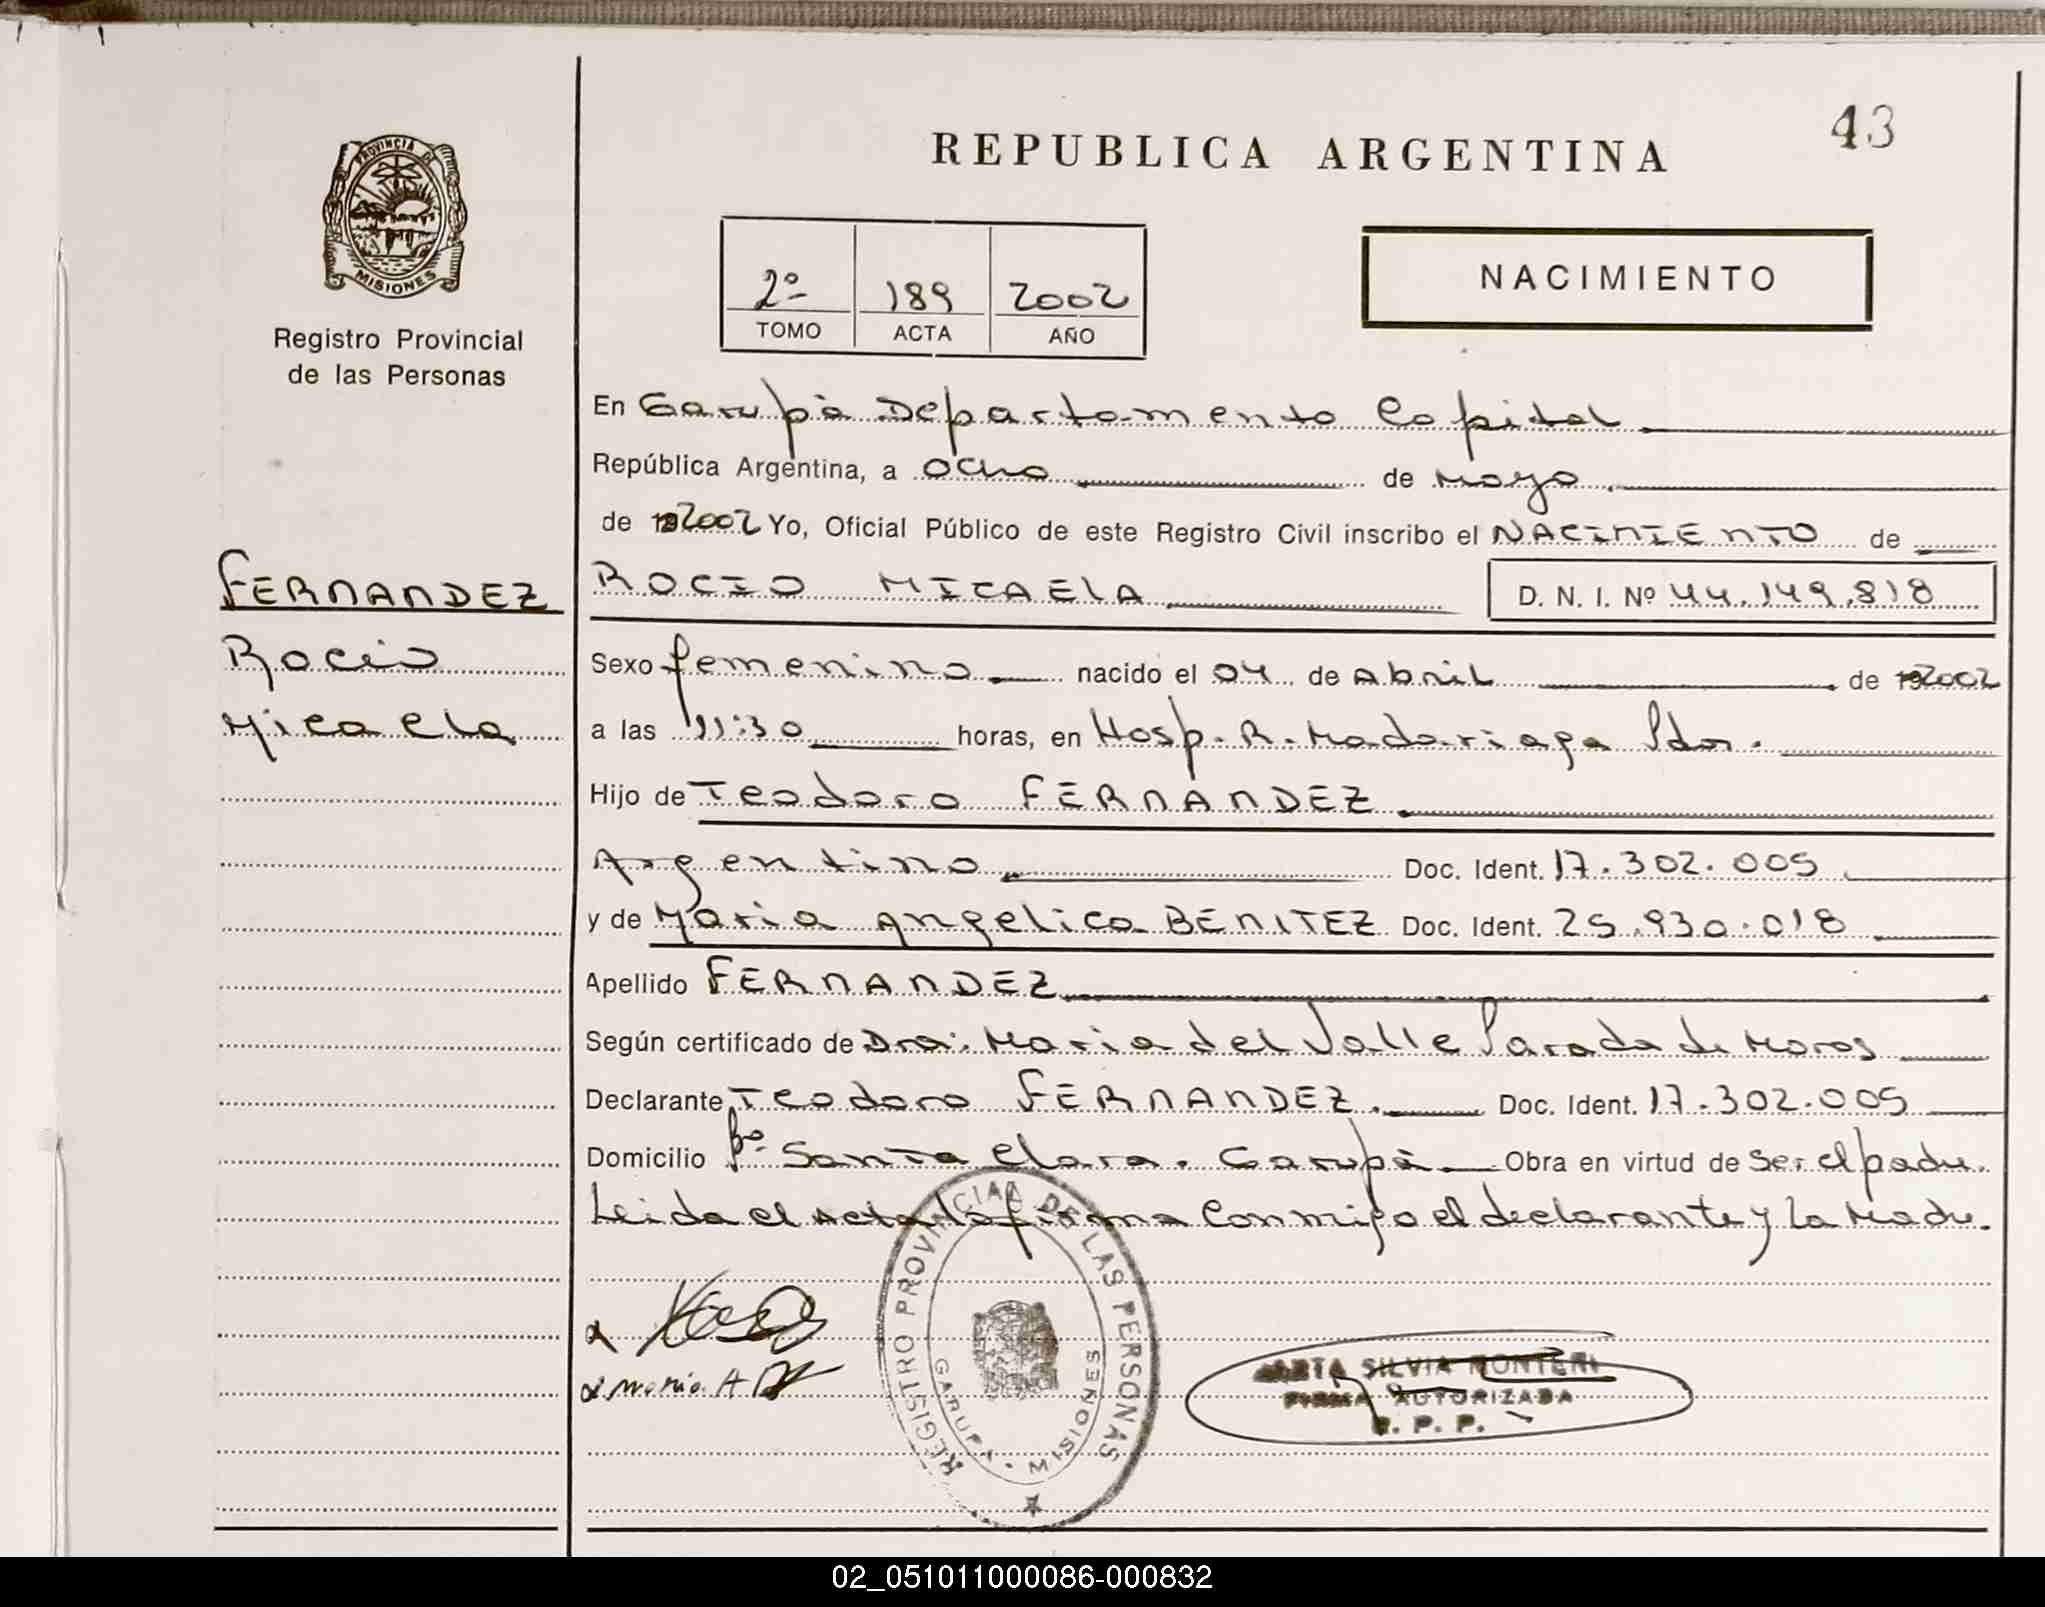 43
REPUBLICA ARGENTINA
PROVINCIA DE
MISIONES
Registro Provincial
de las Personas
2º 189 2002
TOMO ACTA AÑO
NACIMIENTO
En Garupà Departamento Capital
República Argentina, a ocho de Mayo
de 192002 Yo, Oficial Público de este Registro Civil inscribo el NACIMIENTO de
FERNANDEZ
Rocio
Micaela
ROCIO MICAELA D. N. I. Nº 44.149.818
Sexo femenino nacido el 04 de Abril de 192002
a las 11:30 horas, en Hosp. R. Madariaga Pdas.
Hijo de Teodoro FERNANDEZ
Argentino Doc. Ident. 17.302.005
y de Maria Angelica BENITEZ Doc. Ident. 25.930.018
Apellido FERNANDEZ
Según certificado de Dra: Maria del Valle Parada de Moros
Declarante Teodoro FERNANDEZ. Doc. Ident. 17.302.005
Domicilio Bº Santa Clara. Garupà Obra en virtud de Ser el padre.
Leida el Acta la firma Conmigo el declarante y la Madre.
REGISTRO PROVINCIAL DE LAS PERSONAS
GARUPA • MISIONES
Maria A
SILVIA MONTERI
FIRMA AUTORIZADA
R. P. P.
02_051011000086-000832